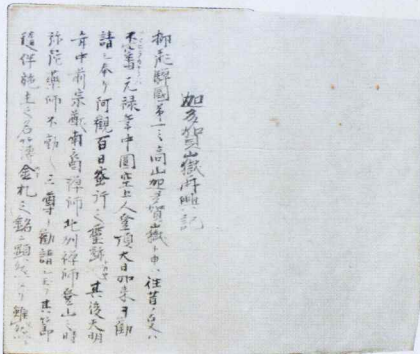 加多賀嶽再興記
抑飛騨國第一之高山加多賀嶽ト申ハ往昔ノ叓ハ
不審元禄年中圓空上人登頂大日如来ヲ勧
請シ奉リ阿觀百日密行之霊跡其後天明
年中前宗猷南裔禅師北州禅師登山之時
弥陀薬師不動之三尊ヲ勧請シ玉フ其節
隨伴施主之名簿金札之銘ニ顕然タリ雖然